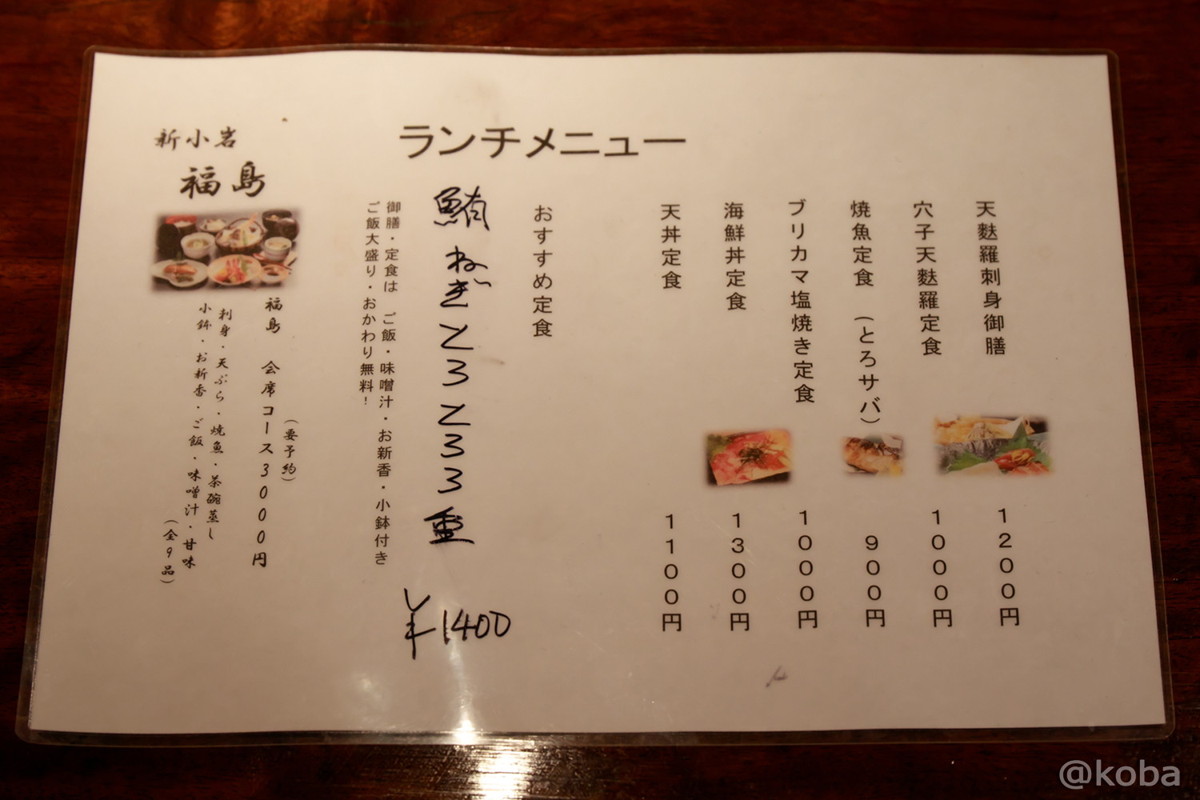 ランチメニュー
天麩羅刺身御膳 1200円
穴子天麩羅定食 1000円
焼魚定食 (とろサバ) 900円
ブリカマ塩焼き定食 1000円
海鮮丼定食 1300円
天丼定食 1100円
おすすめ定食
鮪ねぎとろとろろ重
¥1400
御膳・定食は ご飯・味噌汁・お新香・小鉢付き
ご飯大盛り・おかわり無料!
新小岩
福島
(要予約)
福島 会席コース3000円
刺身・天ぷら・焼魚・茶碗蒸し
小鉢・お新香・ご飯・味噌汁・甘味
(全9品)
@koba